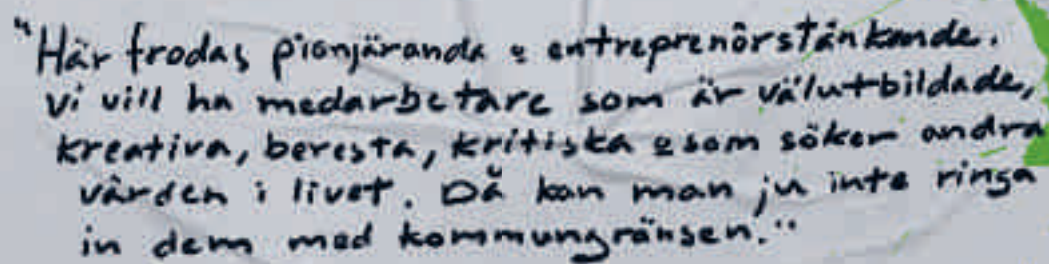 "Här frodas pionjäranda & entreprenörstänkande.
Vi vill ha medarbetare som är välutbildade,
kreativa, beresta, kritiska & som söker andra
värden i livet. Då kan man ju inte ringa
in dem med kommungränsen."